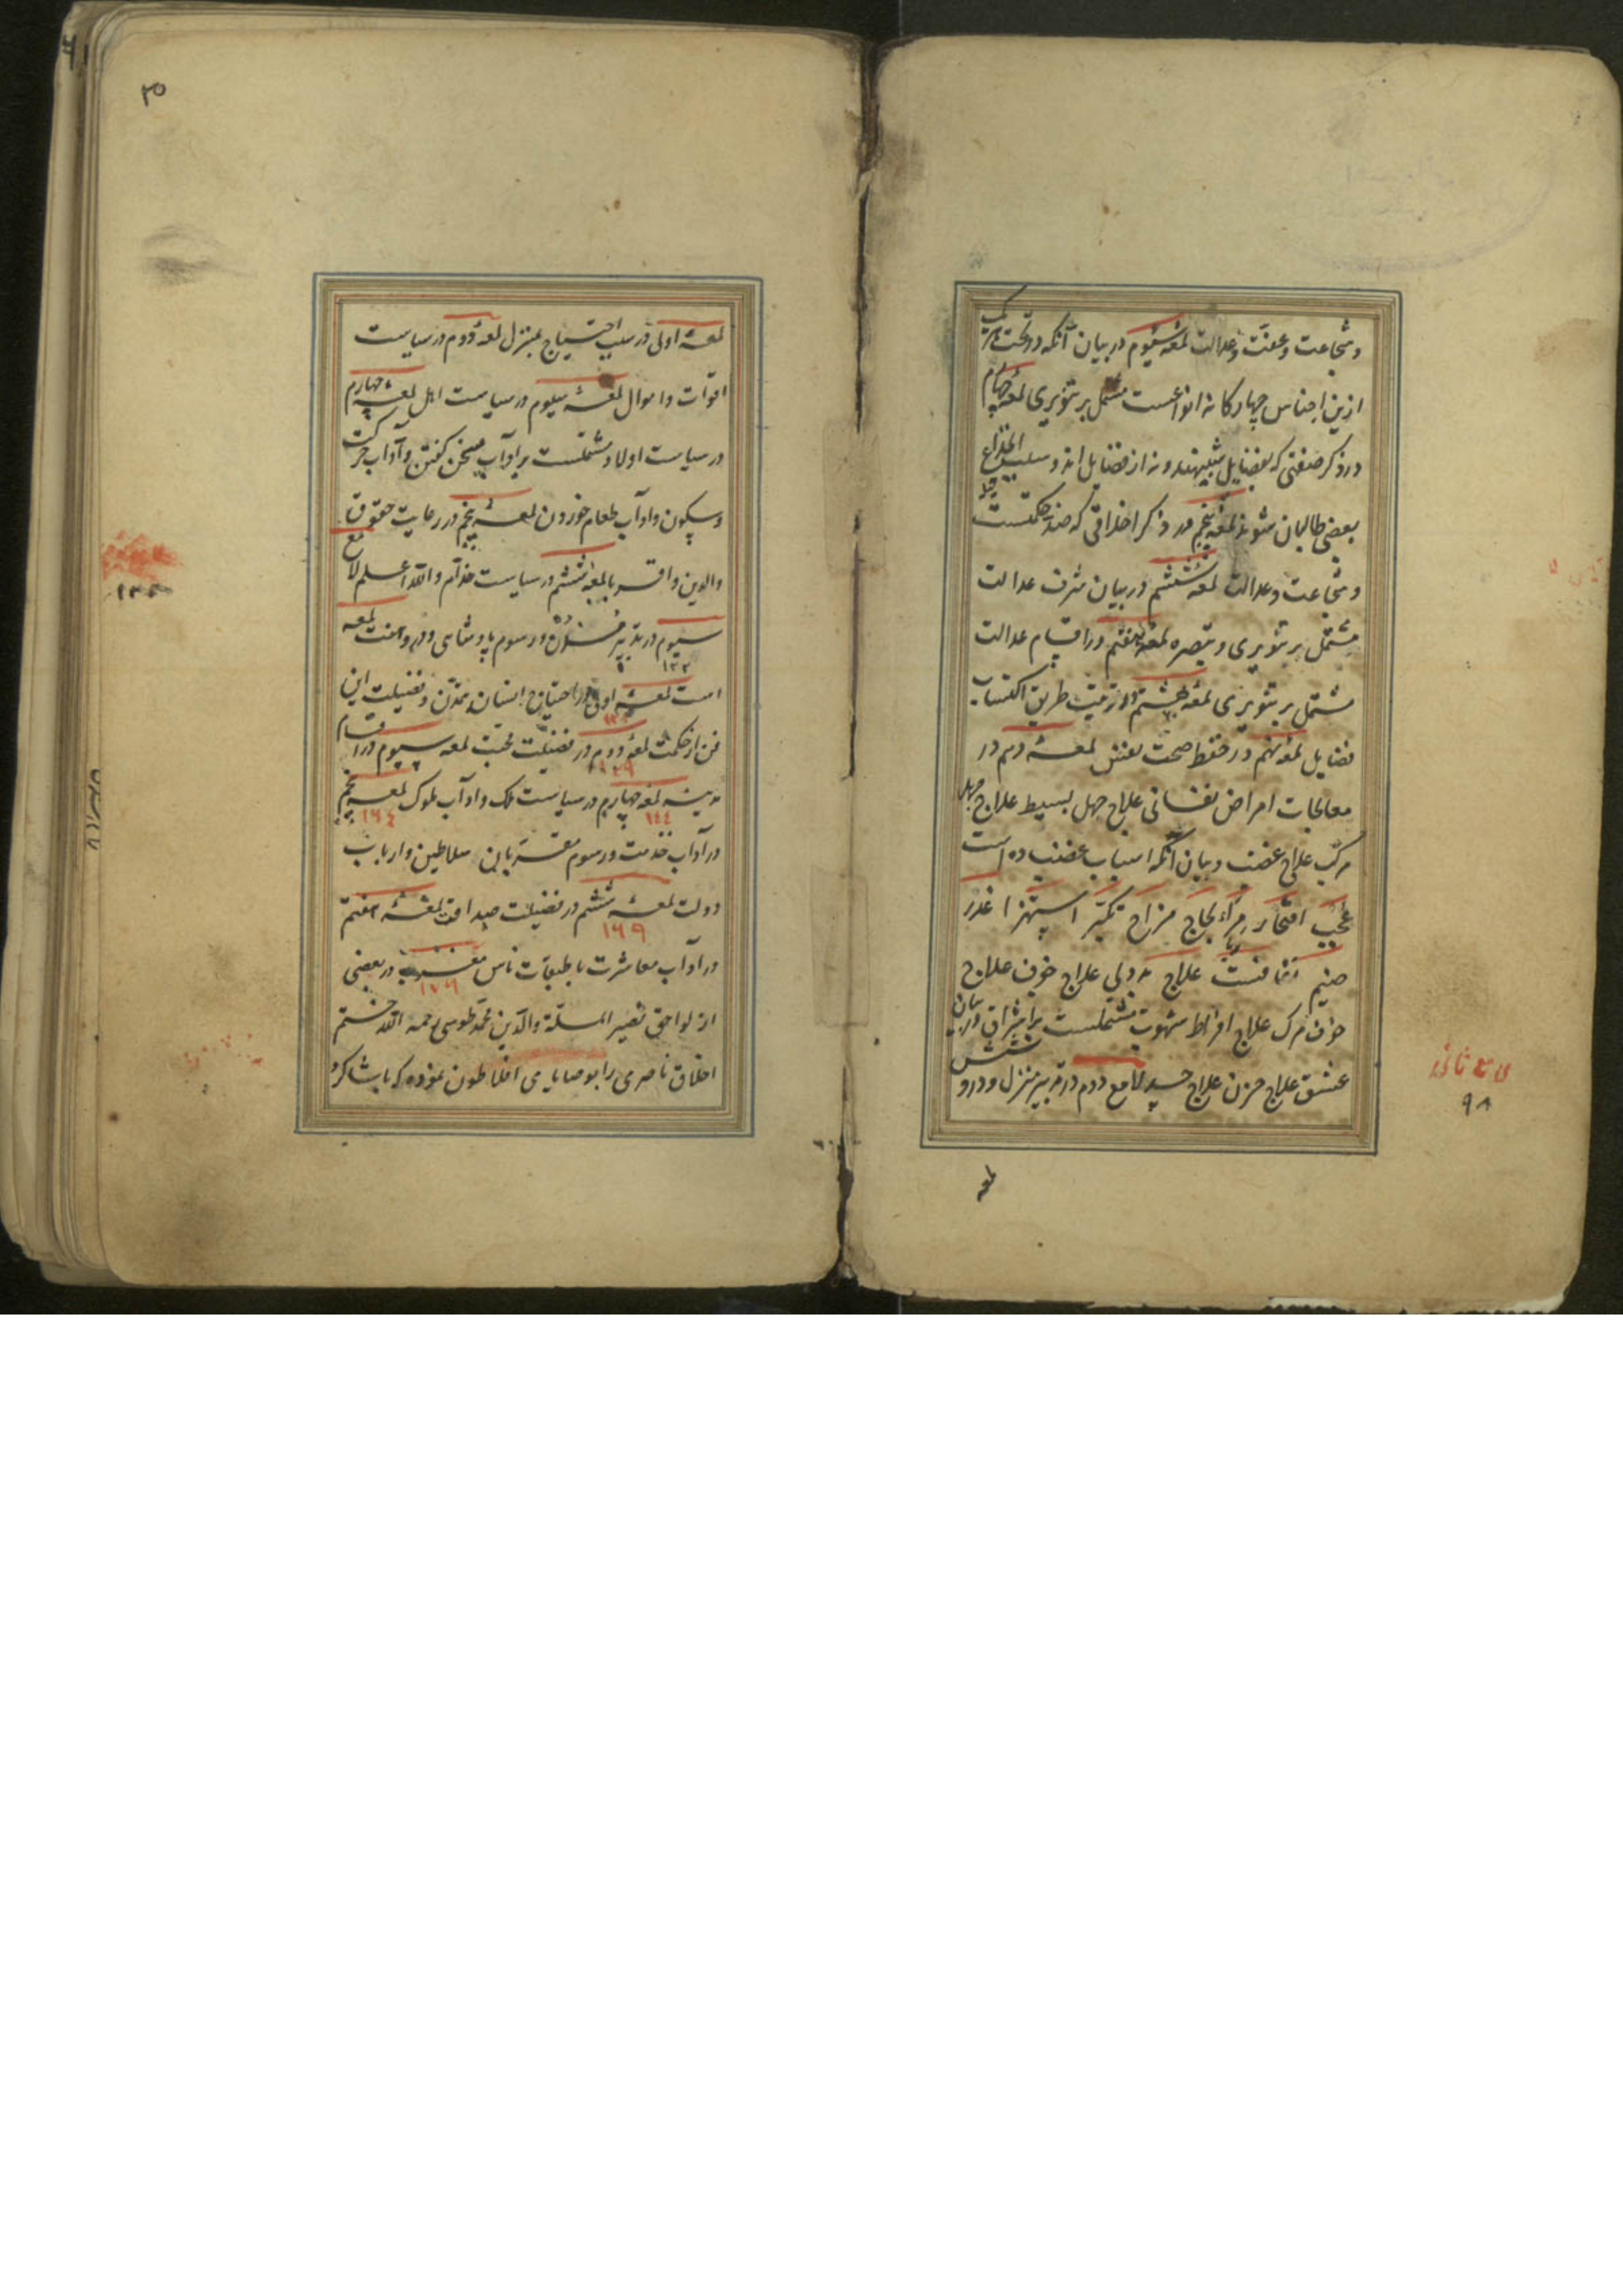 و شجاعت و عفت و عدالت لمعه سیوم در بیان آنکه در تحت هر یک
ازین اجناس چهارگانه انواعست مشتمل بر تنویری لمعه چهارم
در ذکر صفتی که بفضایل شبیهند و نه از فضایل اند و سبب انخداع
بعضی طالبان شوند لمعه پنجم در ذکر اخلاقی که ضد حکمتست
و شجاعت و عدالت لمعه ششم در بیان شرف عدالت
مشتمل بر تنویری و تبصره لمعه هفتم در اقسام عدالت
مشتمل بر تنویری لمعه هشتم در ترتیب طریق اکتساب
فضایل لمعه نهم در حفظ صحت نفس لمعه دهم در
معالجات امراض نفسانی علاج جهل بسیط علاج جهل
مرکب علاج غضب و بیان آنکه اسباب غضب ده است
عجب افتخار مراء لجاج مزاح تکبر استهزا غدر
ضیم منافست علاج بد دلی علاج خوف علاج
خوف مرگ علاج افراط شهوت مشتملست بر اشراق در بیان
عشق علاج حزن علاج حسد لامع دوم در تدبیر منزل و درو شش
لمعه
لامع ثانی
۹۸
۳۵
لمعه اولی در سبب احتیاج بمنزل لمعه دوم در سیاست
اقوات و اموال لمعه سیوم در سیاست اهل لمعه چهارم
در سیاست اولاد مشتملست بر آداب سخن گفتن و آداب حرکت
و سکون و آداب طعام خوردن لمعه پنجم در رعایت حقوق
والدین و اقربا لمعه ششم در سیاست خدام والله اعلم لامع
سیوم در تدبیر مدن و رسوم پادشاهی و درو هفت لمعه
۱۳۲
است لمعه اولی در احتیاج انسان بتمدن و فضیلت این
فن از حکمت لمعه دوم در فضیلت محبت لمعه سیوم در اقسام
مدینه لمعه چهارم در سیاست ملک و آداب ملوک لمعه پنجم
۱۴۴ ۱۶۴
در آداب خدمت و رسوم مقربان سلاطین و ارباب
دولت لمعه ششم در فضیلت صداقت لمعه هفتم
۱۶۹
در آداب معاشرت با طبقات ناس در بعضی
از لواحق نصیر الملة والدین محمد طوسی رحمه الله ختم
اخلاق ناصری را بوصایای افلاطون نموده که با شاکرد